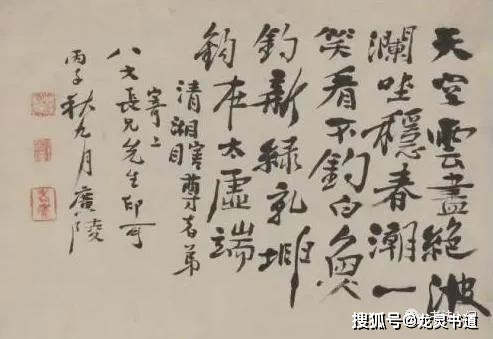 天空雲盡絕波
瀾坐穩春潮一
笑看不釣白魚
釣新綠乾坤
釣在太虛端
清湘瞎尊者弟
寄上
八大長兄先生印可
丙子秋九月廣陵
搜狐号@龙灵书道